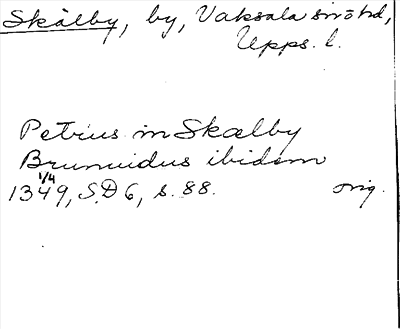 Skälby, by, Vaksala snōtd,
Upps. l.
Petrus in Skælby
Brunuidus ibidem
1/4
1349, SD 6, s. 88. orig.